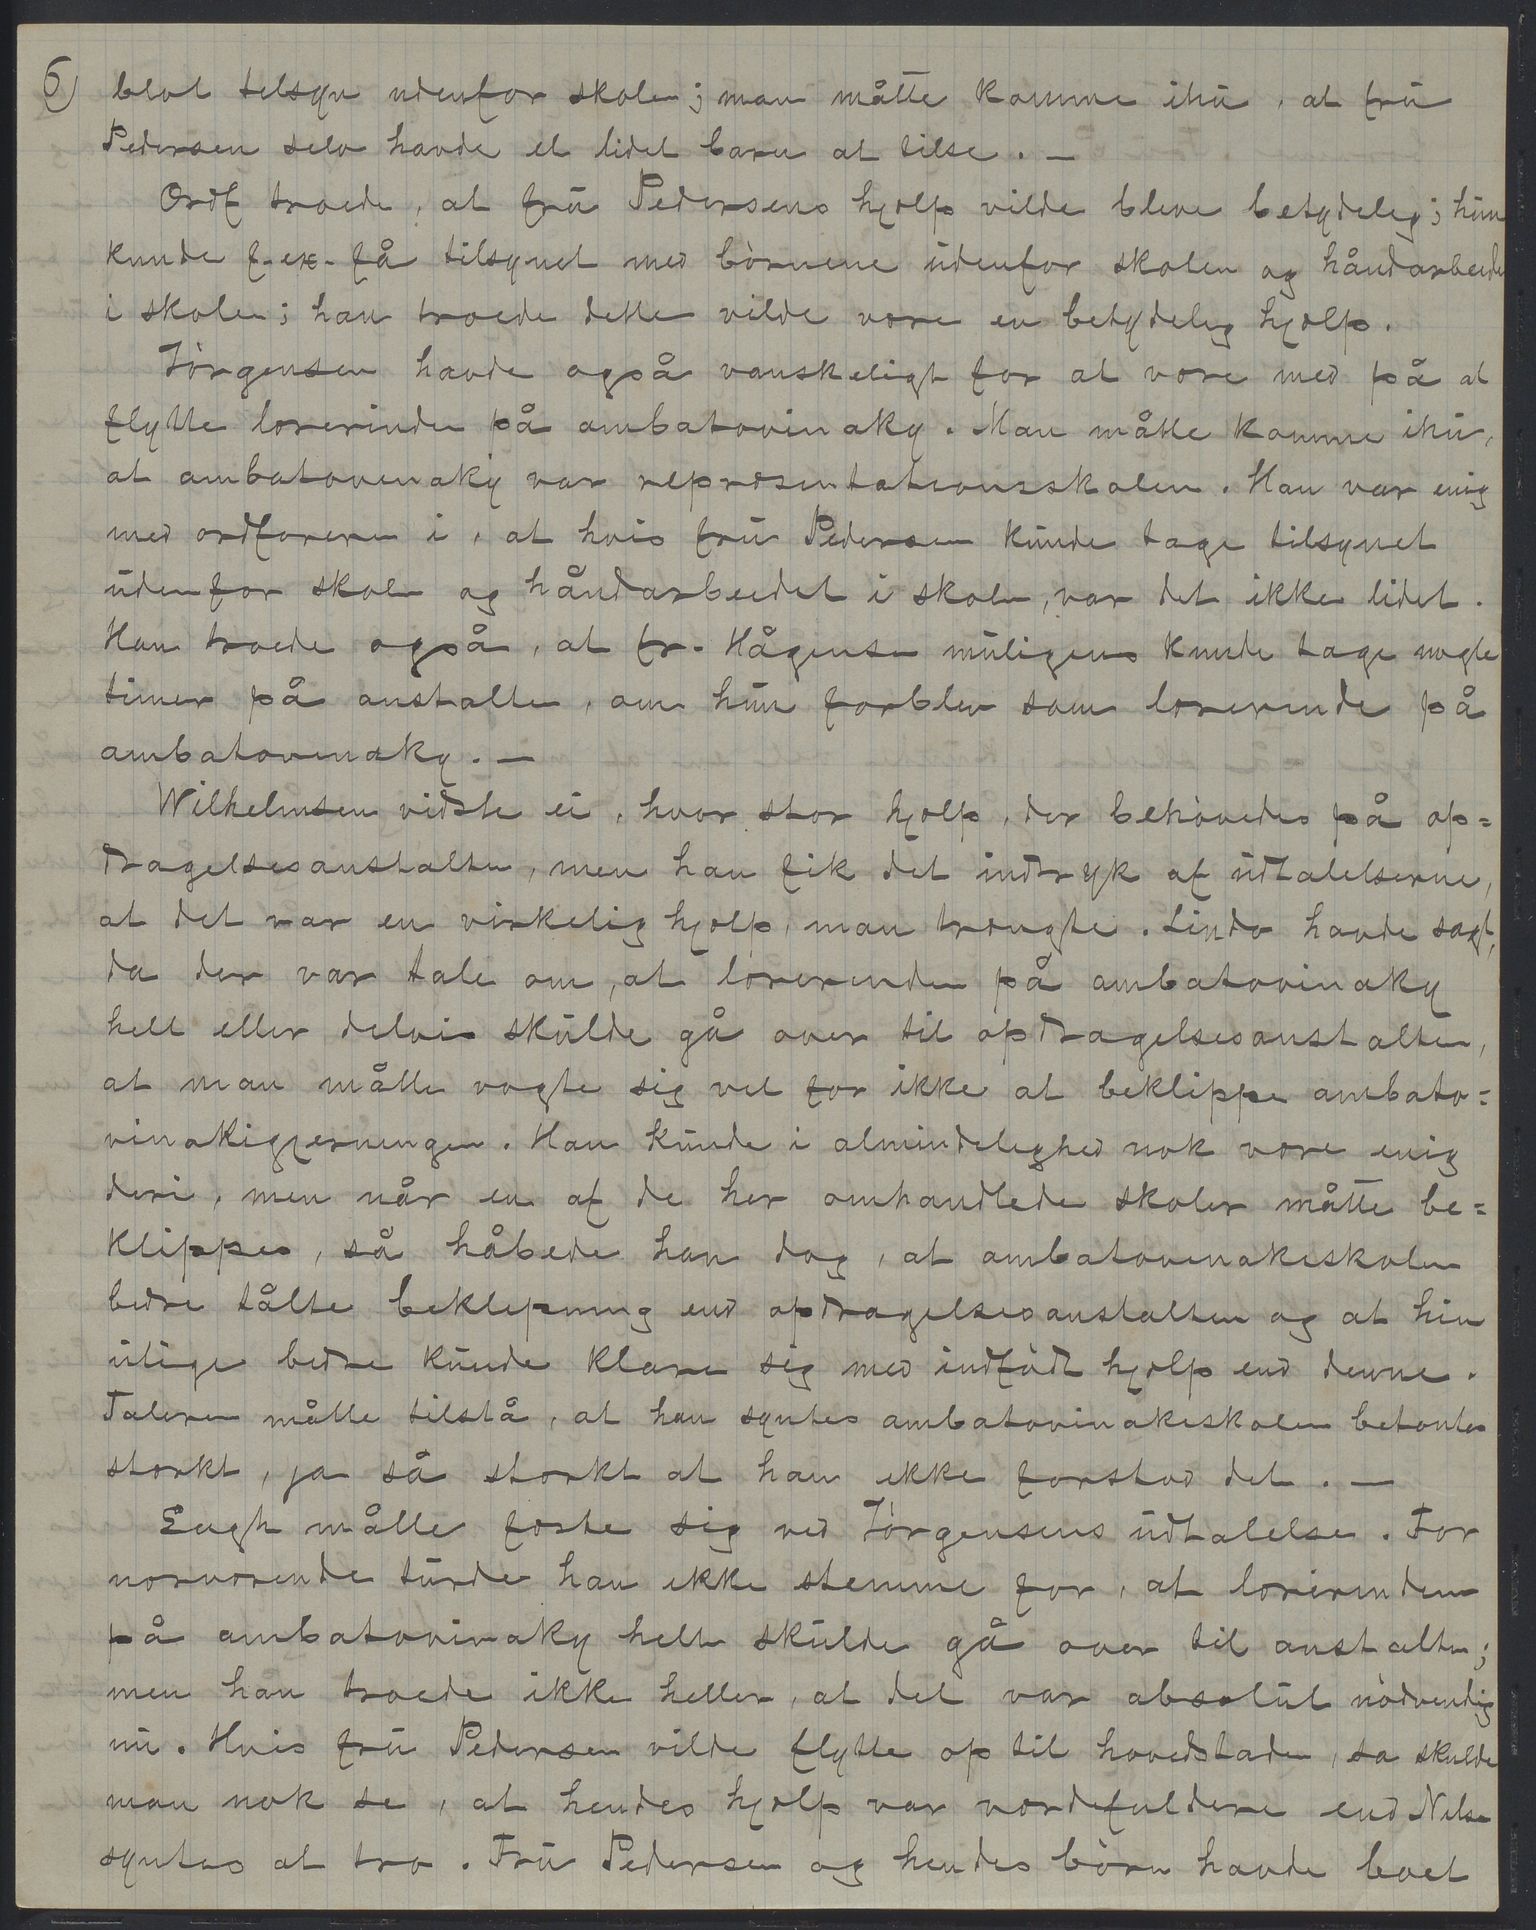 6) blot tilsyn udenfor skolen; man måtte komme ihu, at fru
Pedersen selv havde et lidet barn at tilse. —
Ordf troede, at fru Pedersens hjælp vilde blive betydelig; hun
kunde f. ex. få tilsynet med børnene udenfor skolen og håndarbeide
i skolen; han troede dette vilde være en betydelig hjælp.
Jørgensen havde også vanskeligt for at være med på at
flytte lærerinden på ambatovinaky. Man måtte komme ihu,
at ambatovinaky var repræsentationsskolen. Han var enig
med ordføreren i, at hvis fru Pedersen kunde tage tilsynet
udenfor skolen og håndarbeidet i skolen, var det ikke lidet.
Han troede også, at fr. Hågensen muligens kunde tage nogle
timer på anstalten, om hun forblev som lærerinde på
ambatovinaky. —
Wilhelmsen vidste ei, hvor stor hjælp, der behøvedes på op=
dragelsesanstalten, men han fik det indtryk af udtalelserne,
at det var en virkelig hjælp, man trængte. Lindø havde sagt,
da der var tale om, at lærerinden på ambatovinaky
helt eller delvis skulde gå over til opdragelsesanstalten,
at man måtte vogte sig vel for ikke at beklippe ambato=
vinakigjerningen. Han kunde i almindelighed nok være enig
deri, men når en af de her omhandlede skoler måtte be=
klippes, så håbede han dog, at ambatovinakiskolen
bedre tålte beklipning end opdragelsesanstalten og at hin
ulige bedre kunde klare sig med indfødt hjælp end denne.
Taleren måtte tilstå, at han syntes ambatovinakiskolen betontes
stærkt, ja så stærkt at han ikke forstod det. —
Engh måtte fæste sig ved Jørgensens udtalelse. For
nærværende turde han ikke stemme for, at lærerinden
på ambatovinaky helt skulde gå over til anstalten;
men han troede ikke heller, at det var absolut nødvendig
nu. Hvis fru Pedersen vilde flytte op til hovedstaden, så skulde
man nok se, at hendes hjælp var værdifuldere end Nilsen
syntes at tro. Fru Pedersen og hendes børn havde boet